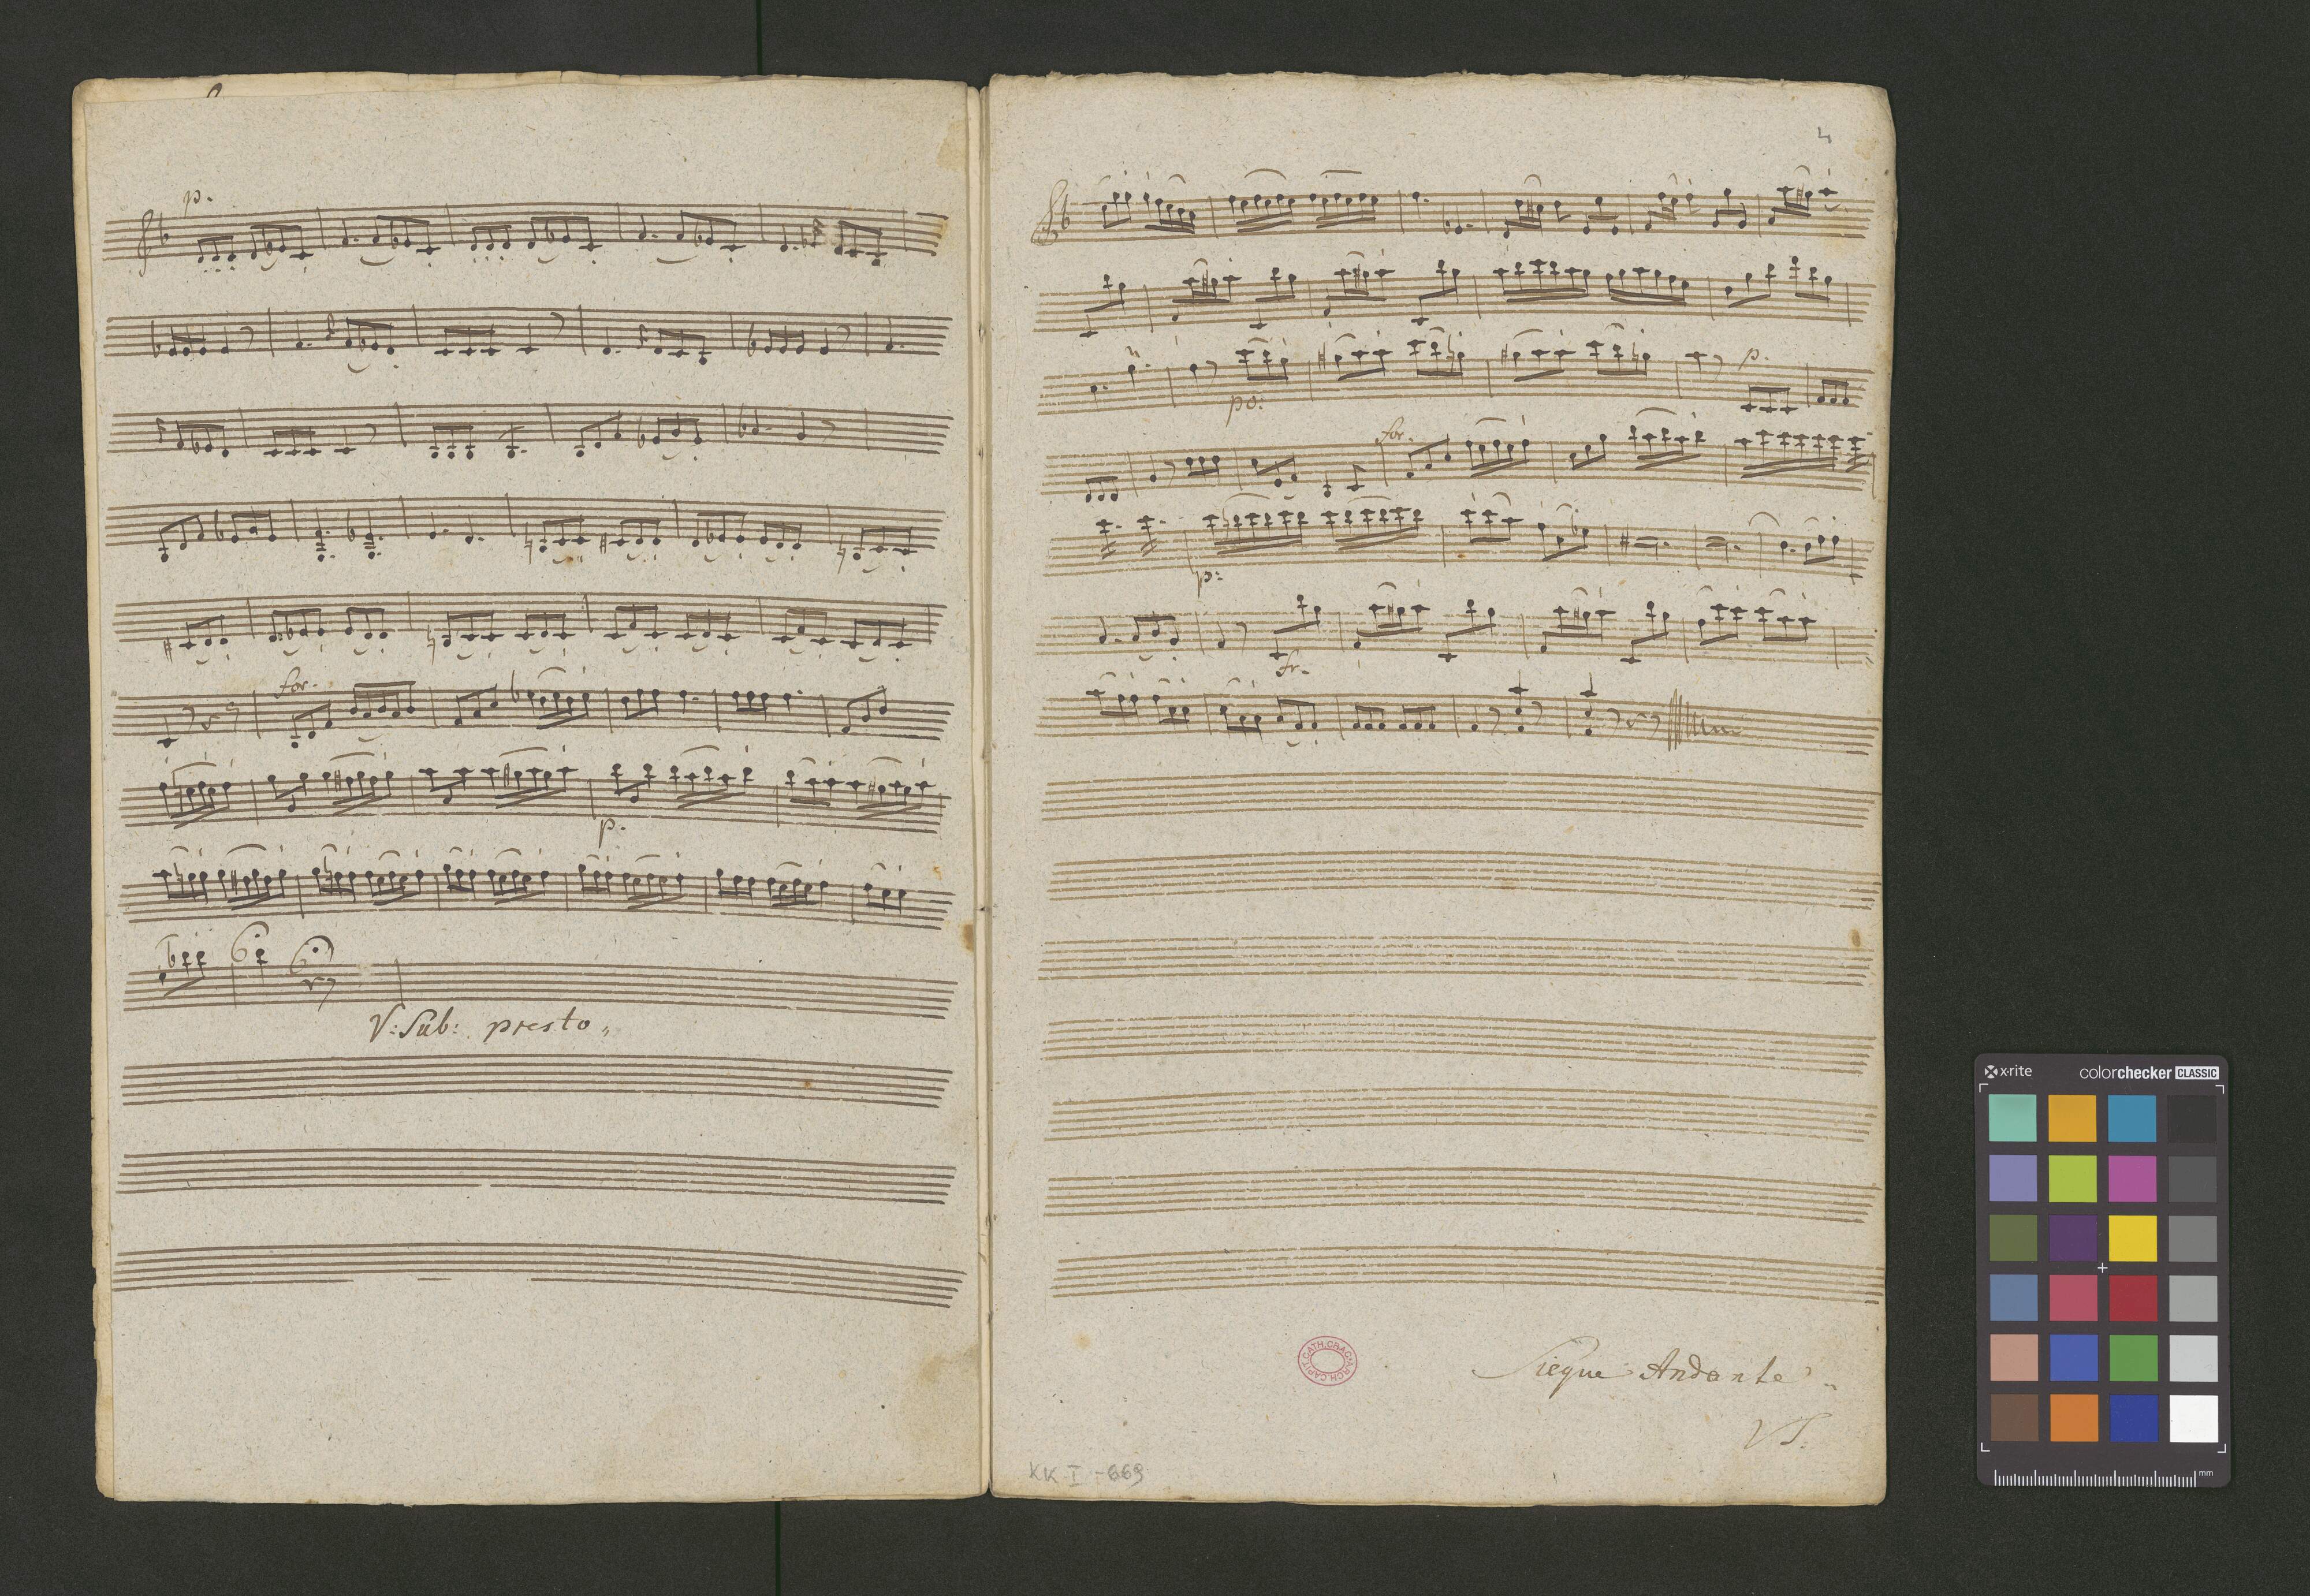 p.
for.
p.
V: Sub: presto„
4
p.
po:
for.
p:
fr.
Siegue Andante
VS.
ARCH. CAPIT. CATH. CRAC.
KK I-669
x-rite
colorchecker CLASSIC
mm